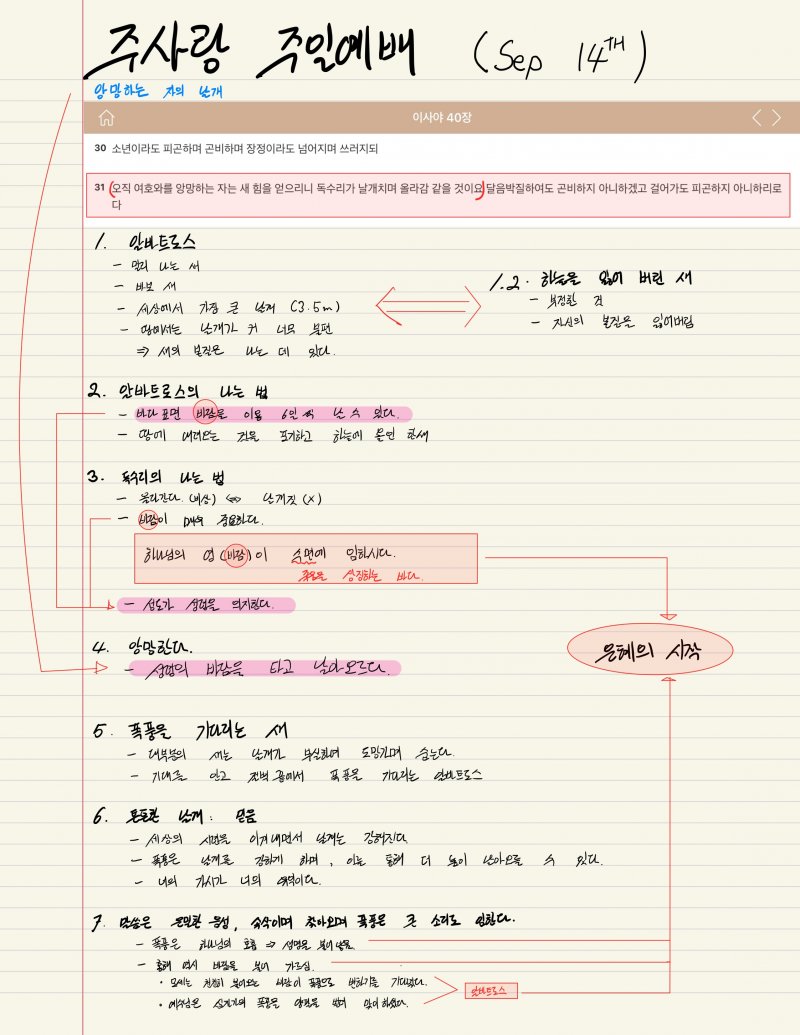 주사랑 주일예배 (Sep 14TH)
앙망하는 자의 날개
이사야 40장
30 소년이라도 피곤하며 곤비하며 장정이라도 넘어지며 쓰러지되
31 오직 여호와를 앙망하는 자는 새 힘을 얻으리니 독수리가 날개치며 올라감 같을 것이요 달음박질하여도 곤비하지 아니하겠고 걸어가도 피곤하지 아니하리로
다
1. 알바트로스
- 멀리 나는 새
- 바보 새
- 세상에서 가장 큰 날개 (3.5m)
- 땅에서는 날개가 커 너무 불편
⇒ 새의 본질은 나는 데 있다.
1.2. 하늘을 잃어 버린 새
- 부정한 것
- 자신의 본질을 잃어버림
2. 알바트로스의 나는 법
- 바다 표면 바람을 이용 6일 날 수 있다.
- 땅에 내려오는 것을 포기하고 하늘에 올인 한새
3. 독수리의 나는 법
- 올라간다.(비상) ⇔ 날개짓 (X)
- 바람이 매우 중요하다.
하나님의 영 (바람)이 수면에 임하시다.
죽음을 상징하는 바다.
- 성도가 성령을 의지한다.
4. 앙망한다.
- 성령의 바람을 타고 날아오르다.
은혜의 시작
5. 폭풍을 기다리는 새
- 대부분의 새는 날개가 부실하여 도망가며 숨는다.
- 기대를 안고 절벽 끝에서 폭풍을 기다리는 알바트로스
6. 튼튼한 날개: 믿음
- 세상의 시련을 이겨내면서 날개는 강해진다.
- 폭풍은 날개를 강하게 하며, 이는 통해 더 높이 날아오를 수 있다.
- 너의 가시가 너의 영역이다.
7. 말씀은 은밀한 음성, 속삭이며 찾아오며 폭풍은 큰 소리로 임한다.
- 폭풍은 하나님의 호흡 ⇒ 생명을 불어넣음.
- 홍해 역시 바람을 불어 가르심.
• 모세는 잔잔히 불어오는 바람이 폭풍으로 변하기를 기다렸다.
• 예수님은 십자가의 폭풍을 맞이하셨다.
알바트로스